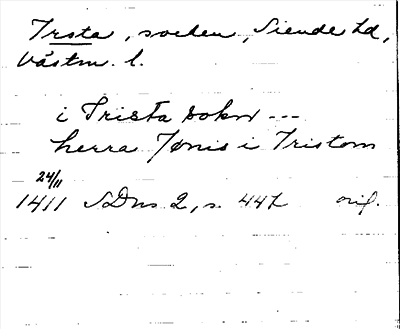 Irsta, socken, Siende hd,
Västm. l.
i Trista sokn ---
herra Jønis i Tristom
24/11
1411 SDns 2, s. 442 orig.